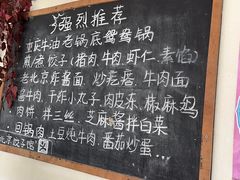 强烈推荐
重庆牛油老锅底鸳鸯锅
煎/煮饺子(猪肉、牛肉、虾仁、素馅)
老北京炸酱面、炒疙瘩、牛肉面
酱牛肉、干炸小丸子、肉皮冻、椒麻鸡
肉饼、拌三丝、芝麻酱拌白菜
回锅肉、土豆炖牛肉、番茄炒蛋…
北京饺子馆